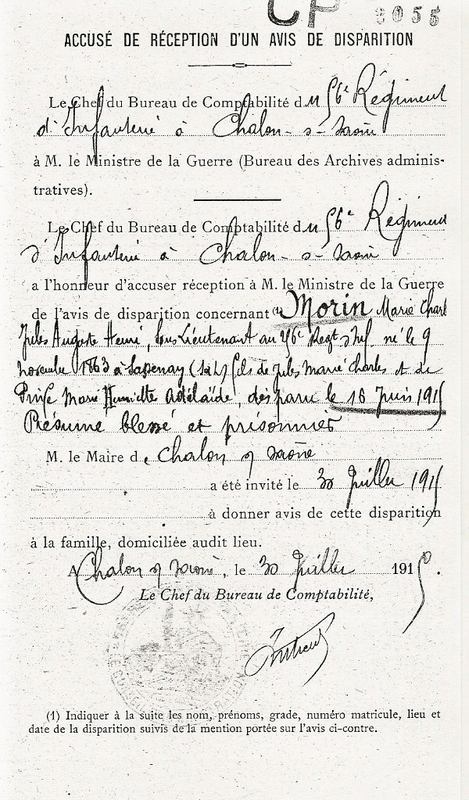 CP 8055
ACCUSÉ DE RÉCEPTION D'UN AVIS DE DISPARITION
Le Chef du Bureau de Comptabilité du 56e Régiment
d'Infanterie à Chalon-s-Saône
à M. le Ministre de la Guerre (Bureau des Archives adminis-
tratives).
Le Chef du Bureau de Comptabilité du 56e Régiment
d'Infanterie à Chalon-s-Saône
a l'honneur d'accuser réception à M. le Ministre de la Guerre
de l'avis de disparition concernant (1) Morin Marie Charl
Jules Auguste Henri, Sous Lieutenant au 56e Regt d'Inf. né le 9
novembre 1863 à (S&L) fils de Jules Marie Charles et de
Marie Henriette Adélaïde, disparu le 16 Juin 1915
Présumé blessé et prisonnier
M. le Maire de Chalon s/ Saône
a été invité le 30 Juillet 1915
à donner avis de cette disparition
à la famille, domiciliée audit lieu.
A Chalon s/ Saône, le 30 Juillet 1915.
Le Chef du Bureau de Comptabilité,
(1) Indiquer à la suite les nom, prénoms, grade, numéro matricule, lieu et
date de la disparition suivis de la mention portée sur l'avis ci-contre.